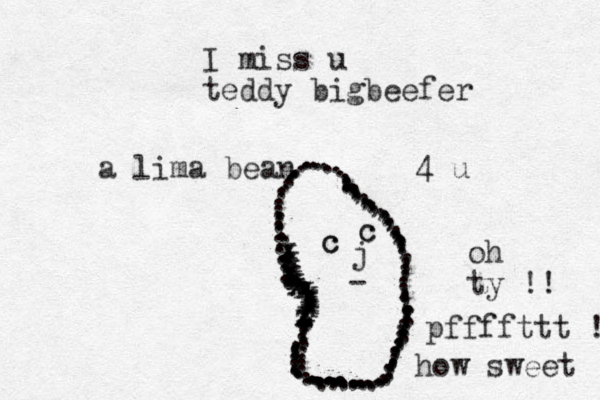 I miss u
teddy bigbeefer
a lima bean 4 u
c c
j
-
oh
ty !!
pffffttt !
how sweet